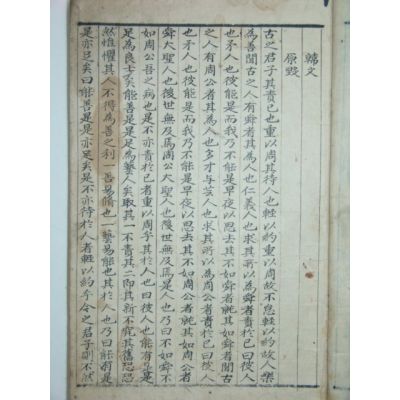 韓文
原毀
古之君子其責己也重以周其待人也輕以約重以周故不怠輕以約故人樂
為善聞古之人有舜者其為人也仁義人也求其所以為舜者責於己曰彼人
也予人也彼能是而我乃不能是早夜以思去其不如舜者就其如舜者聞古
之人有周公者其為人也多才与芸人也求其所以為周公者責於己曰彼人
也予人也彼能是而我乃不能是早夜以思去其不如周公者就其如周公者
舜大聖人也後世無及焉周公大聖人也後世無及焉是人也乃曰不如舜不
如周公吾之病也是不亦責於己者重以周乎其於人也曰彼人也能有是是
足為良士矣能善是是足為藝人矣取其一不責其二即其新不究其舊恐恐
然惟懼其人不得為善之利一善易脩也一藝易能也其於人也乃曰能有是
是亦足矣曰能善是是亦足矣是不亦待於人者輕以約乎今之君子則不然